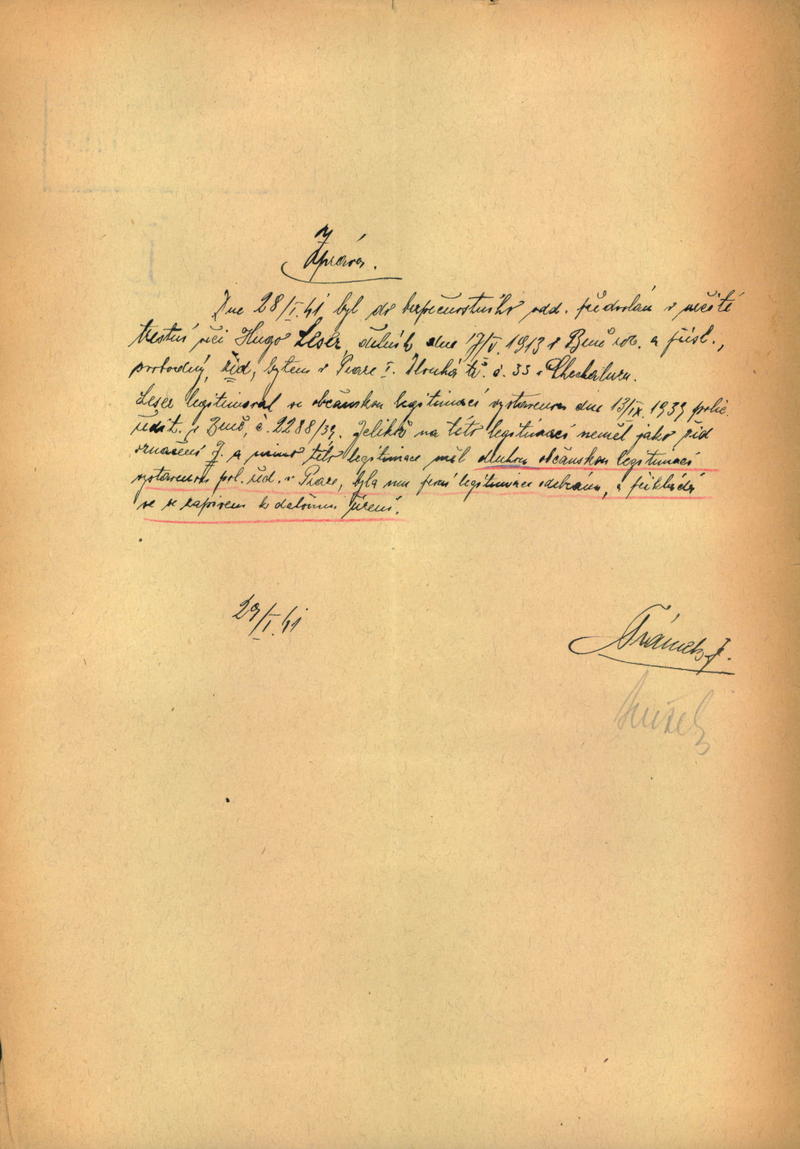 Zpráva.
Dne 28/I.41 byl do bezpečnostního odd. předvolán v určité
trestní věci Hugo Leser, dělník, dne 17/V. 1913 v Brně nar. a přísl.,
svobodný, žid, bytem v Praze I. Dlouhá tř. č. 33 u
Leser legitimoval se občanskou legitimací vystavenou dne 13/IX. 1939 polic.
ředit. v Brně, č. 2288/39. Jelikož na této legitimaci neměl jako žid
označení J. a mimo této legitimace měl druhou občanskou legitimaci
vystavenou pol. řed. v Praze, byla mu první legitimace odebrána, a přikládá
se se zápisem k dalšímu řízení.
29/I.41